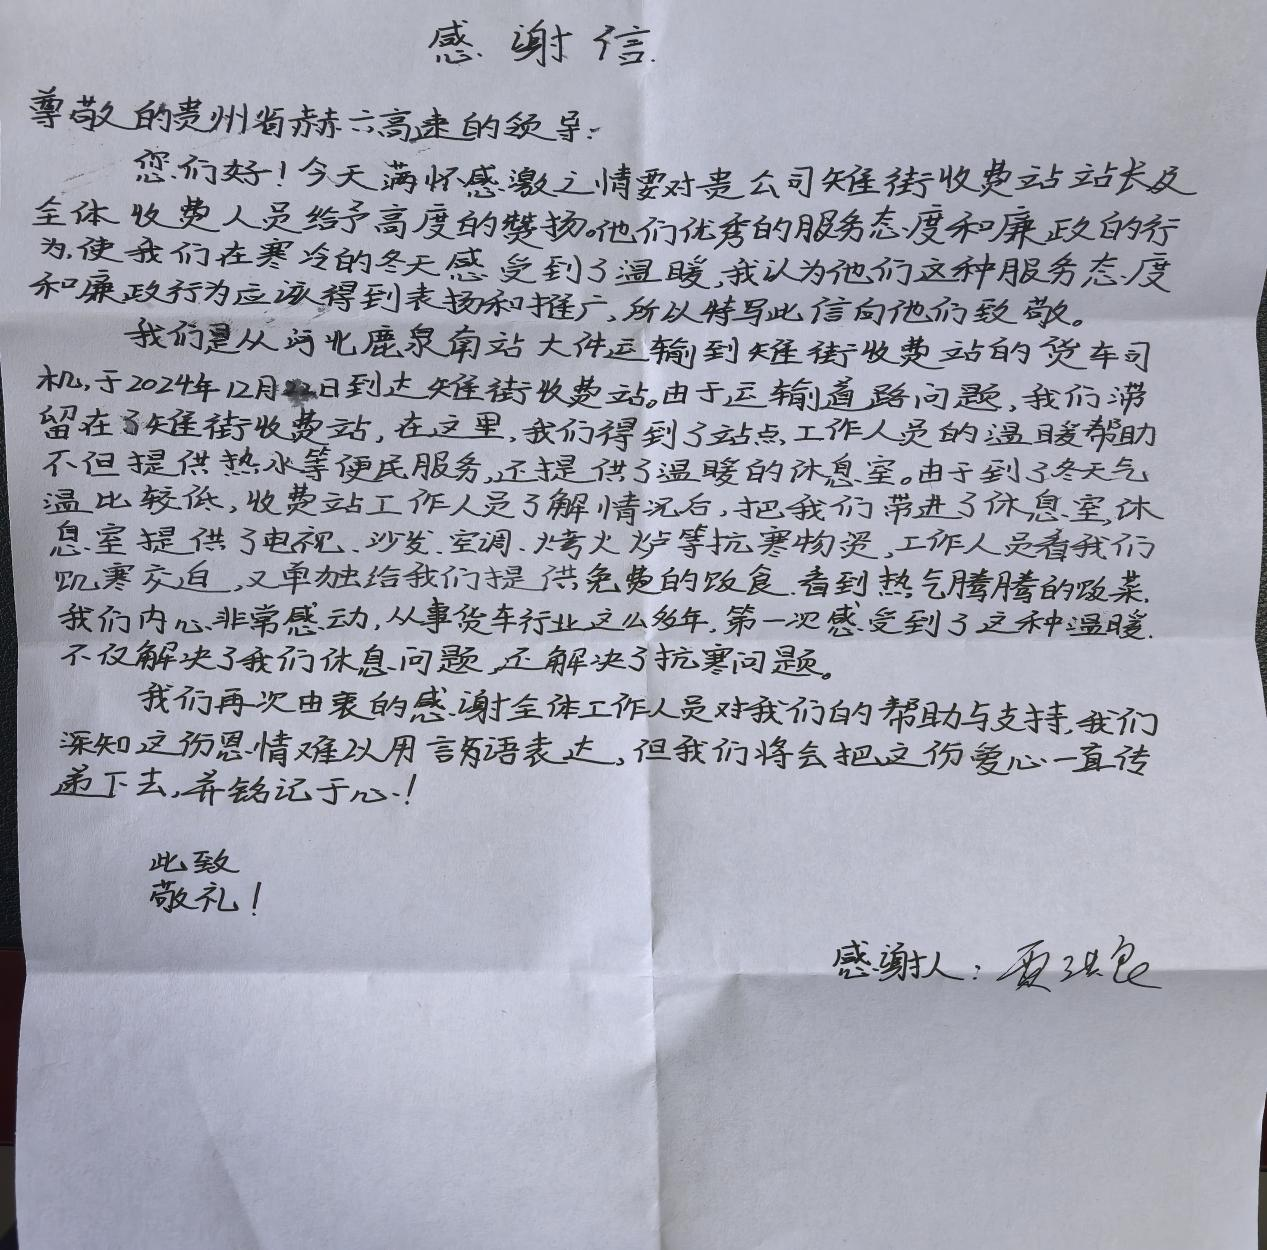 感谢信
尊敬的贵州省赫六高速的领导:
您们好!今天满怀感激之情要对贵公司雉街收费站站长及
全体收费人员给予高度的赞扬。他们优秀的服务态度和廉政的行
为,使我们在寒冷的冬天感受到了温暖,我认为他们这种服务态度
和廉政行为应该得到表扬和推广,所以特写此信向他们致敬。
我们是从河北鹿泉南站大件运输到雉街收费站的货车司
机,于2024年12月日到达雉街收费站。由于运输道路问题,我们滞
留在了雉街收费站,在这里,我们得到了站点工作人员的温暖帮助
不但提供热水等便民服务,还提供了温暖的休息室。由于到了冬天气
温比较低,收费站工作人员了解情况后,把我们带进了休息室,休
息室提供了电视、沙发、空调、烤火炉等抗寒物资,工作人员看我们
饥寒交迫,又单独给我们提供免费的饭食.看到热气腾腾的饭菜.
我们内心非常感动,从事货车行业这么多年,第一次感受到了这种温暖.
不仅解决了我们休息问题,还解决了抗寒问题。
我们再次由衷的感谢全体工作人员对我们的帮助与支持,我们
深知这份恩情难以用言语表达,但我们将会把这份爱心一直传
递下去,并铭记于心!
此致
敬礼!
感谢人: